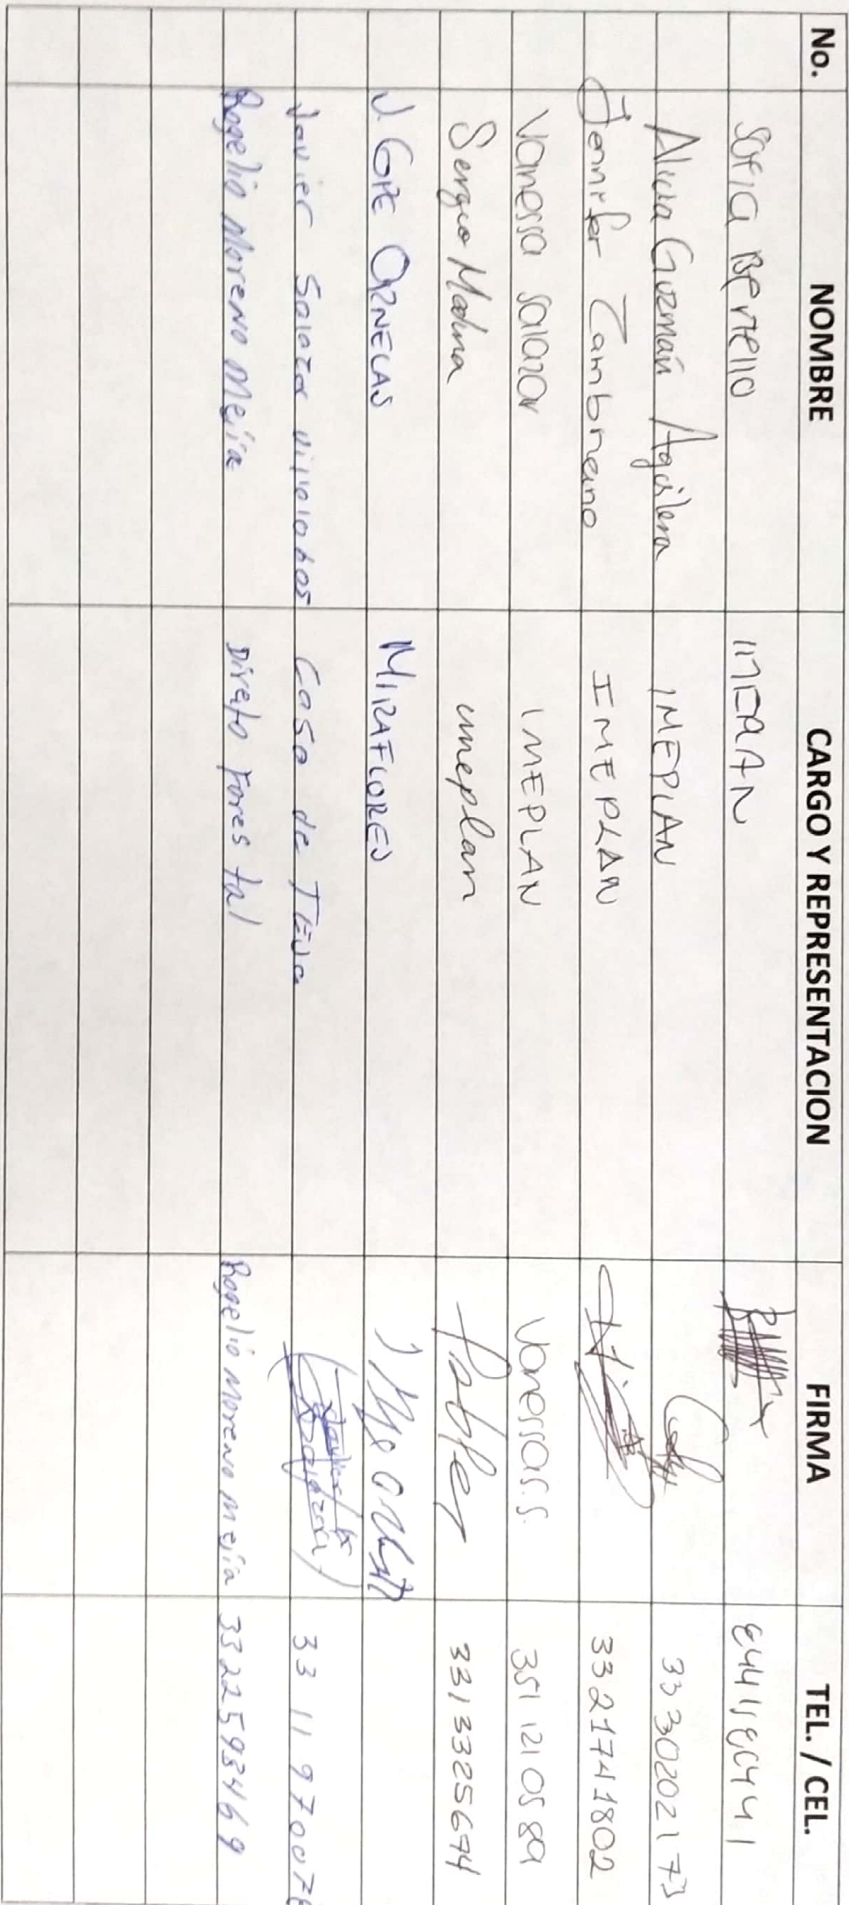 No. NOMBRE CARGO Y REPRESENTACION FIRMA TEL. / CEL.
Sofia Bertello IMEPLAN
Alicia Guzmán Aguilera IMEPLAN 3330202173
Jennifer Zambrano IMEPLAN 3321741802
Vanessa Salazar IMEPLAN Vanessa S.S. 351 121 05 89
Sergio Medina imeplan 3313325674
J. GPE ORNELAS MIRAFLORES
Javier Salazar Casa de
Rogelio Moreno Mejía Direto Forestal Rogelio Moreno mejía 3322593469